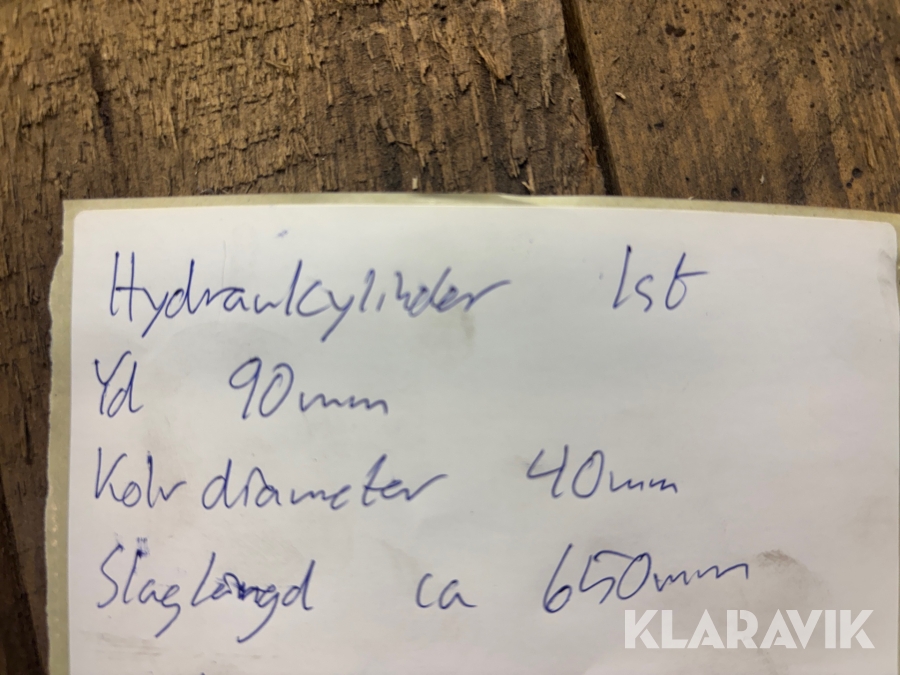 Hydraulcylinder 1st
Yd 90mm
Kolv diameter 40mm
Slaglängd ca 650mm
KLARAVIK